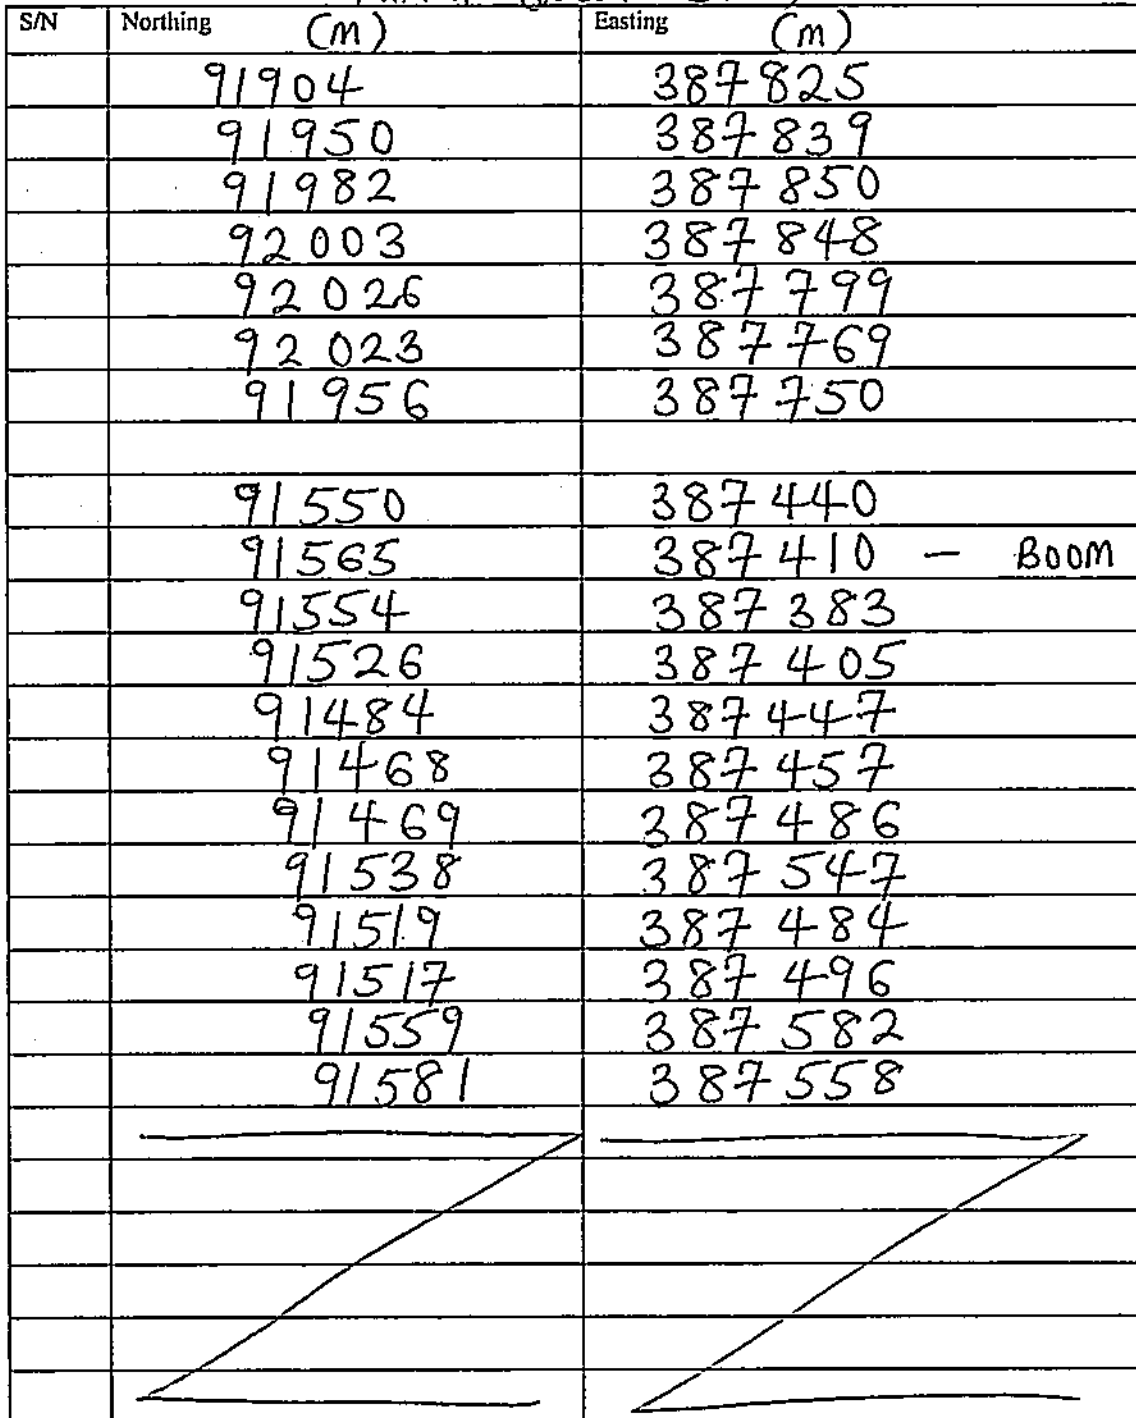 S/N Northing (m) Easting (m)
91904 387825
91950 387839
91982 387850
92003 387848
92026 387799
92023 387769
91956 387750
91550 387440
91565 387410 - BOOM
91554 387383
91526 387405
91484 387447
91468 387457
91469 387486
91538 387547
91519 387484
91517 387496
91559 387582
91581 387558